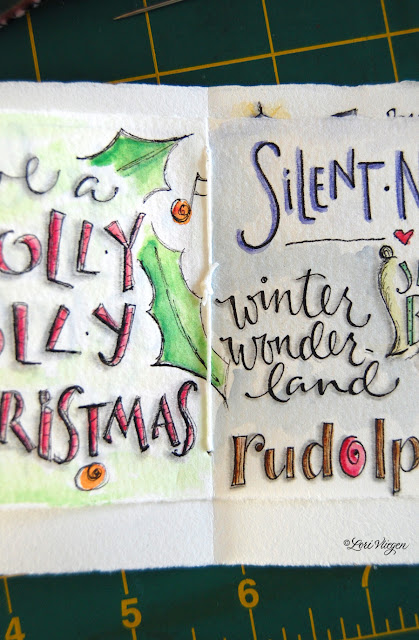 ve a
OLLY
OLLY
RISTMAS
SILENT·N
winter
wonder-
land
rudolp
©Lori Vliegen
4 5 6 7